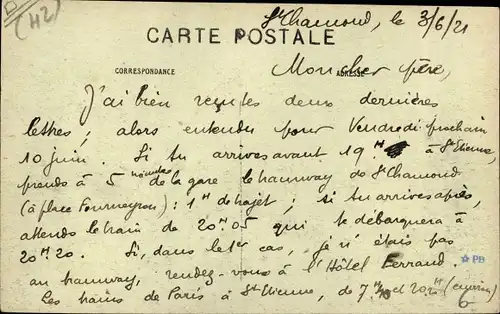 (42)
St Chamond, le 3/6/21
CARTE POSTALE
CORRESPONDANCE
ADRESSE
Mon cher père,
J'ai bien reçu tes deux dernières
lettres ; alors entendu pour Vendredi prochain
10 juin. Si tu arrives avant 19H à St Etienne,
prends à 5 minutes de la gare le tramway de St Chamond
(à place Fourneyron) : 1H de trajet ; si tu arrives après,
attends le train de 20H05 qui te débarquera à
20H20. Si, dans le 1er cas, je n'étais pas
au tramway, rendez-vous à l'Hôtel Ferrand.
Les trains de Paris à St Etienne, de 7H et 20H (environ)
PB